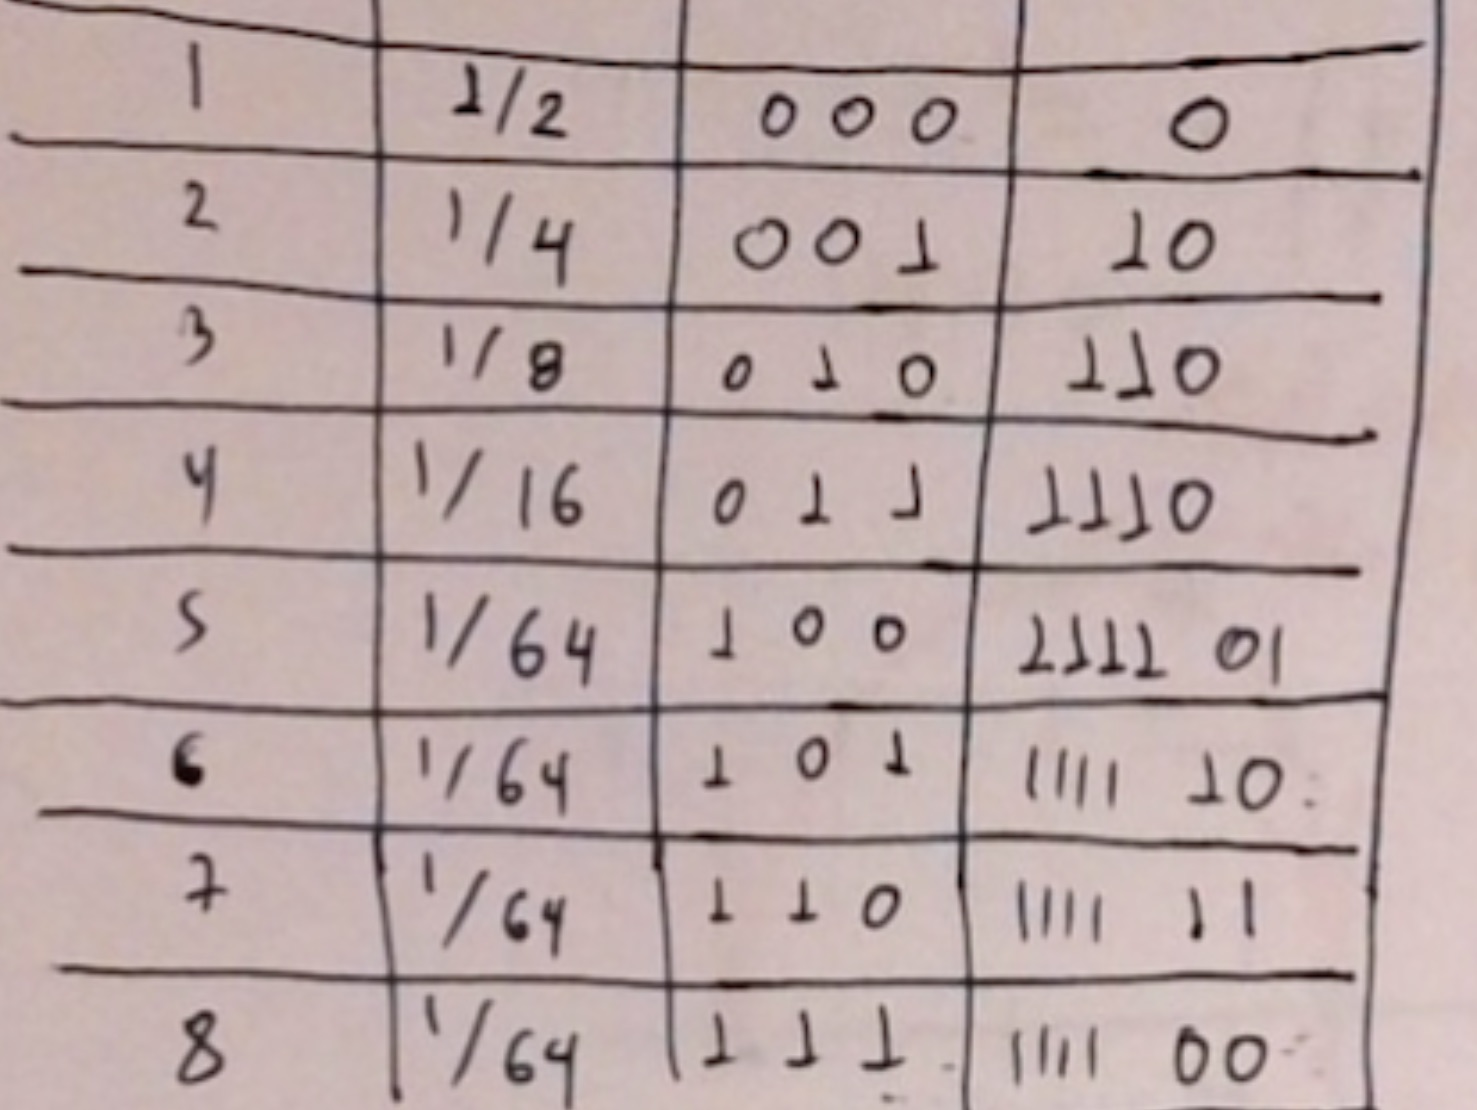 1 1/2 000 0
2 1/4 001 10
3 1/8 010 110
4 1/16 011 1110
5 1/64 100 1111 01
6 1/64 101 1111 10
7 1/64 110 1111 11
8 1/64 111 1111 00